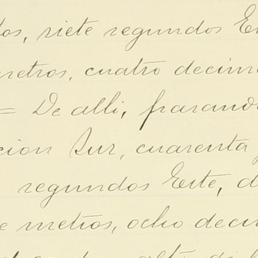 dos, siete segundos E
metros, cuatro decim
= De alli, pasando
cion Sur, cuarenta y
segundos Este, d
e metros, ocho decim